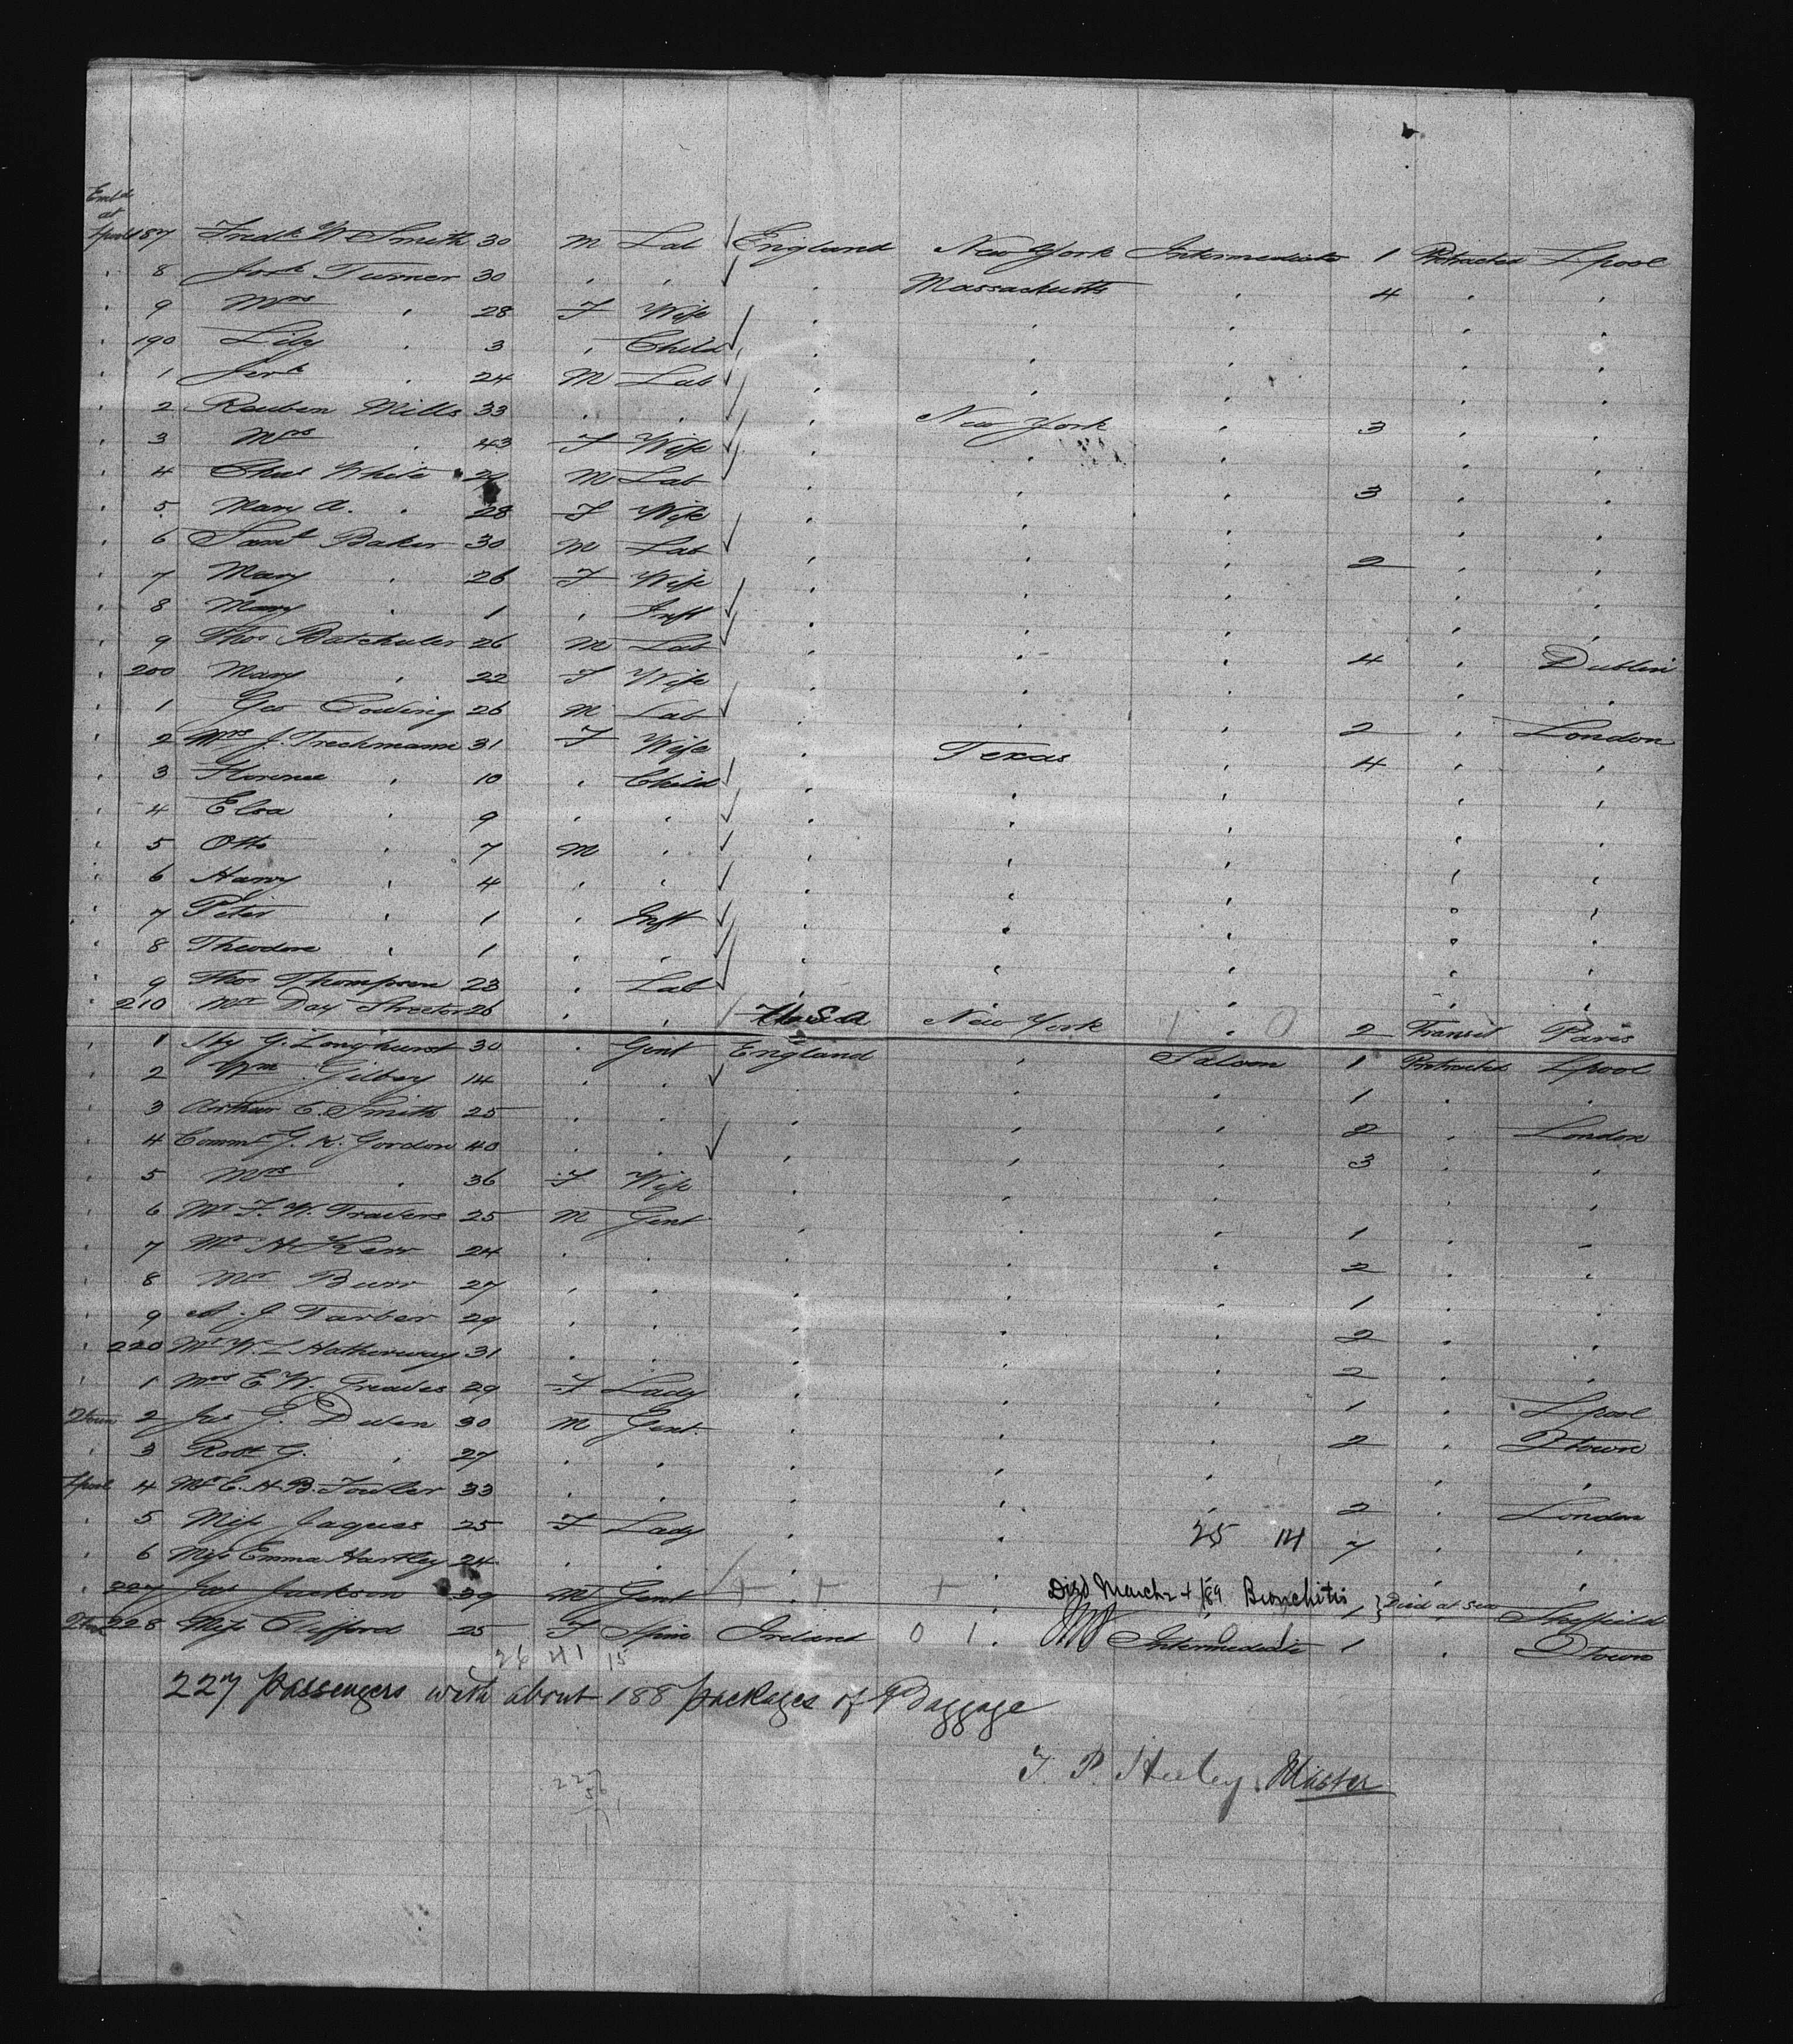 Embd
at
Lpool 187 Fredk W Smith 30 M Lab England New York Intermediate 1 Protracted Lpool
8 Josh Turner 30 " " " Massachusetts " 4 " "
9 Mrs " 28 F Wife " " " " "
190 Lily " 3 " Child " " " " "
1 Josh " 24 M Lab " " " " "
2 Reuben Mills 33 " " " New York " 3 " "
3 Mrs " 43 F Wife " " " " "
4 Chas White 29 M Lab " " " 3 " "
5 Mary A. " 28 F Wife " " " " "
6 Saml Baker 30 M Lab " " " 2 " "
7 Mary " 26 F Wife " " " " "
8 Mary " 1 " Inft " " " " "
9 Thos Batchuler 26 M Lab " " " 4 " Dublin
200 Mary " 22 F Wife " " " " "
1 Geo Cowling 26 M Lab " " " 2 " London
2 Mrs J. Trechmann 31 F Wife " Texas " 4 " "
3 Florence " 10 " Child " " " " "
4 Elsa " 9 " " " " " " "
5 Otto " 7 M " " " " " "
6 Harry " 4 " " " " " " "
7 Peter " 1 " Inft " " " " "
8 Theodore " 1 " " " " " " "
9 Thos Thompson 23 " Lab " " " " "
210 Mr Day Streeter 26 " " U.S.A New York 1 " 0 2 Transit Paris
1 Hy G. Longhurst 30 " Gent England " Saloon 1 Protracted Lpool
2 Wm Gilbey 14 " " " " " 1 " "
3 Arthur C. Smith 25 " " " " " 2 " London
4 Commr G. K. Gordon 40 " " " " " 3 " "
5 Mrs " 36 F Wife " " " " "
6 Mr F. W. Travers 25 M Gent " " " 1 " "
7 Mr H Kerr 24 " " " " " 2 " "
8 Mr Burr 27 " " " " " 1 " "
9 A. J. Tarber 29 " " " " " 2 " "
220 Mr W. L Hatherway 31 " " " " " 2 " "
1 Mrs E W. Greaves 29 F Lady " " " 1 " Lpool
Qtown 2 Jas G. Deven 30 M Gent. " " " 2 " Qtown
3 Robt G. " 27 " " " " " " "
Lpool 4 Mr C. H. B. Fowler 33 " " " " " 2 " London
5 Miss Jaques 25 F Lady " " 25 14 7 " "
6 Miss Emma Hartley 24 " " " " " "
227 Jas Jackson 39 M Gent + + + Died March 4/89 Bronchitis 1 } Died at Sea Sheffield
Qtown 228 Miss Clifford 25 F Spin Ireland 0 1 " Intermediate 0 1 1 " Qtown
26 41 15
227 passengers with about 188 packages of Baggage
T. P. Heeley Master
227
56
171